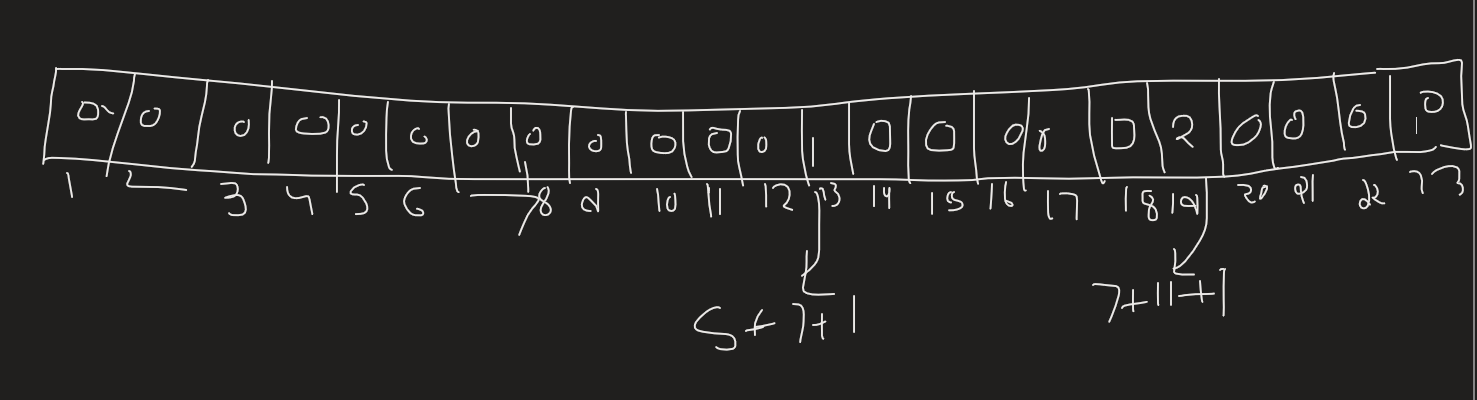 0 0 0 0 0 0 0 0 0 0 0 0 1 0 0 0 0 0 2 0 0 0 0
1 2 3 4 5 6 7 8 9 10 11 12 13 14 15 16 17 18 19 20 21 22 23
5+7+1
7+11+1